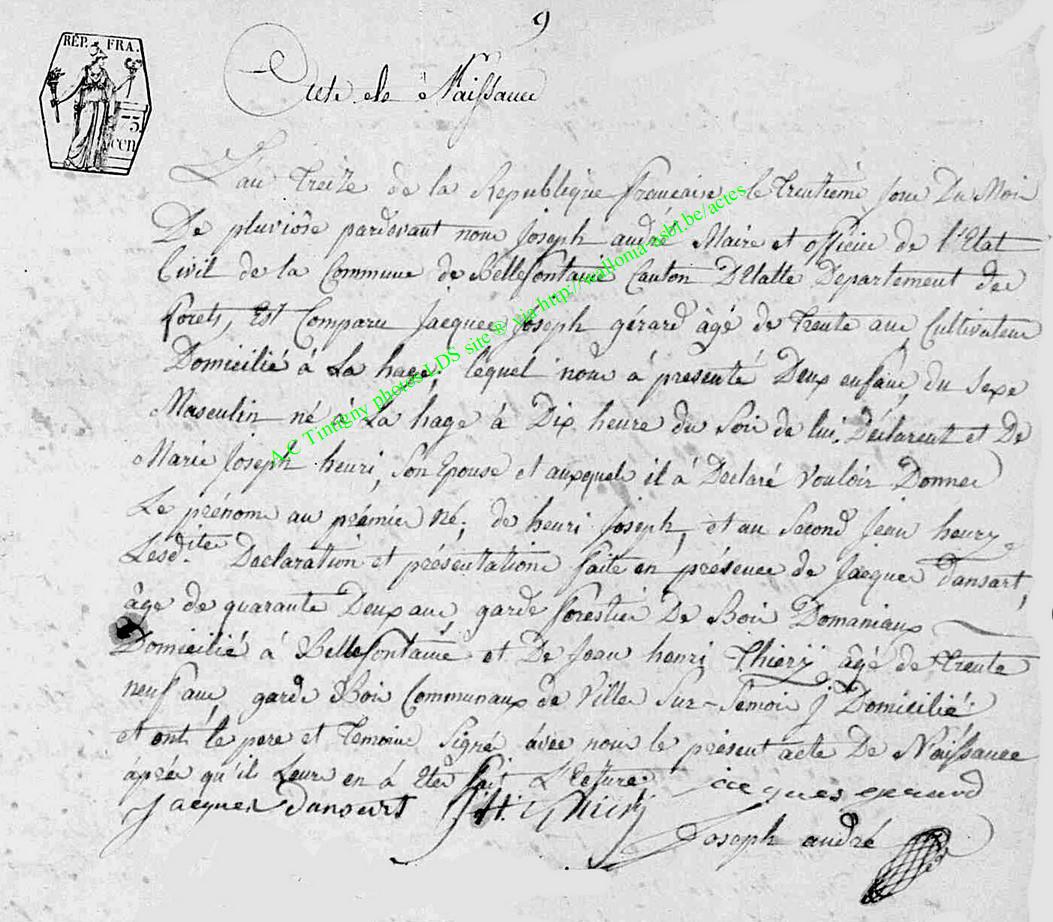 9
RÉP. FRA.
75
cen
Acte de Naissance
L'an treize de la Republique française le trentieme jour Du Mois
De pluviôse pardevant nous Joseph andré Maire et officier de l'Etat
Civil de la Commune de Bellefontaine Canton D'Etalle Departement des
forets, Est Comparu Jacques Joseph gérard âgé de trente ans Cultivateur
Domicilié à La hage, lequel nous à presenté Deux enfans du Sexe
Masculin né à La hage à Dix heure du Soir de lui Déclarent et De
Marie Joseph henri, son Epouse et auxquels il à Declaré vouloir Donner
Le prénom au prémier né, de henri Joseph, et au Second Jean henry
Lesdites Declaration et présentation faite en présence de Jacques Dansart,
âge de quarante Deux ans, garde forestier De Bois Domaniaux
Domicilié à Bellefontaine et De Jean henri Thiery âgé de trente
neuf ans, garde Bois Communaux de Ville Sur-Semois y Domicilié
et ont le pere et temoins Signé avec nous le présent acte De Naissance
après qu'il Leur en à eté fait Lecture
jacques gerard
Jacques Dansart
JH. Thiery
Joseph andré
A.C Tintigny photos LDS site © via http://wallonia-asbl.be/actes